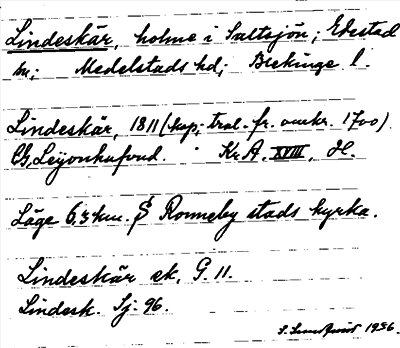 Lindeskär, holme i Saltsjön; Edestad
sn; Medelstads hd; Blekinge l.
Lindeskär, 1811 (kop; trol. fr. omkr. 1700)
CG, Leijonhufvud. Kr.A. XVIII, H.
Läge 6,3 km. S Ronneby stads kyrka.
Lindeskär ek. G. 11.
Lindesk. Sj. 96.
1936.